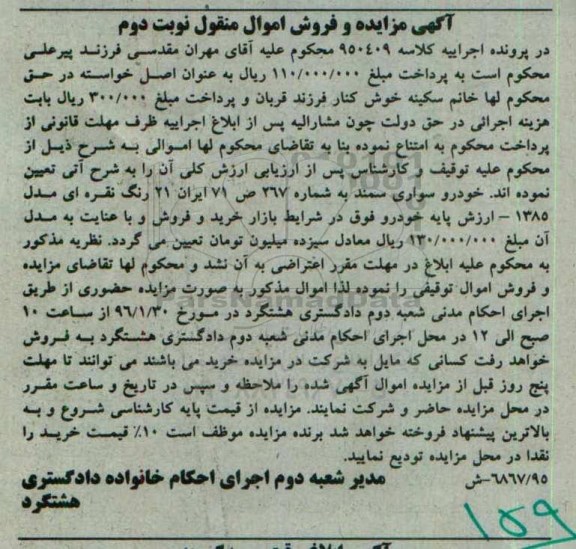 آگهی مزایده و فروش اموال منقول نوبت دوم
در پرونده اجراییه کلاسه ۹۵۰۴۰۹ محکوم علیه آقای مهران مقدسی فرزند پیرعلی
محکوم است به پرداخت مبلغ ۱۱۰/۰۰۰/۰۰۰ ریال به عنوان اصل خواسته در حق
محکوم لها خانم سکینه خوش کنار فرزند قربان و پرداخت مبلغ ۳۰۰/۰۰۰ ریال بابت
هزینه اجرائی در حق دولت چون مشارالیه پس از ابلاغ اجراییه ظرف مهلت قانونی از
پرداخت محکوم به امتناع نموده بنا به تقاضای محکوم لها اموالی به شرح ذیل از
محکوم علیه توقیف و کارشناس پس از ارزیابی ارزش کلی آن را به شرح آتی تعیین
نموده اند. خودرو سواری سمند به شماره ۲۶۷ ص ۷۱ ایران ۲۱ رنگ نقره ای مدل
۱۳۸۵ – ارزش پایه خودرو فوق در شرایط بازار خرید و فروش و با عنایت به مدل
آن مبلغ ۱۳۰/۰۰۰/۰۰۰ ریال معادل سیزده میلیون تومان تعیین می گردد. نظریه مذکور
به محکوم علیه ابلاغ در مهلت مقرر اعتراضی به آن نشد و محکوم لها تقاضای مزایده
و فروش اموال توقیفی را نموده لذا اموال مذکور به صورت مزایده حضوری از طریق
اجرای احکام مدنی شعبه دوم دادگستری هشتگرد در مورخ ۹۶/۱/۳۰ از ساعت ۱۰
صبح الی ۱۲ در محل اجرای احکام مدنی شعبه دوم دادگستری هشتگرد به فروش
خواهد رفت کسانی که مایل به شرکت در مزایده خرید می باشند می توانند تا مهلت
پنج روز قبل از مزایده اموال آگهی شده را ملاحظه و سپس در تاریخ و ساعت مقرر
در محل مزایده حاضر و شرکت نمایند. مزایده از قیمت پایه کارشناسی شروع و به
بالاترین پیشنهاد فروخته خواهد شد برنده مزایده موظف است ۱۰٪ قیمت خرید را
نقدا در محل مزایده تودیع نمایید.
۶۸۶۷/۹۵-ش
مدیر شعبه دوم اجرای احکام خانواده دادگستری
هشتگرد
۱۵۹
ParsNamadData